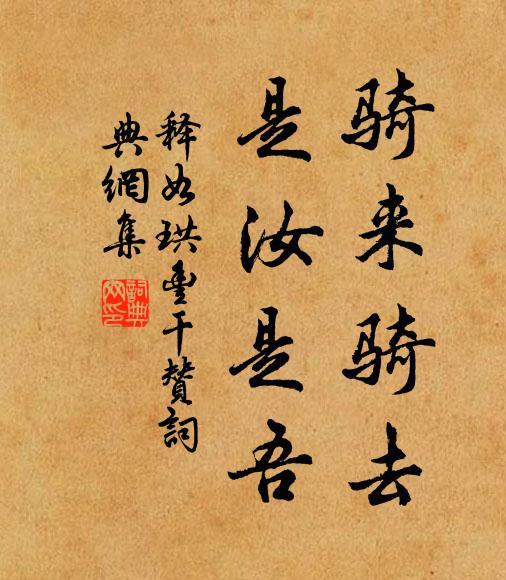 骑来骑去
是汝是吾
释如珙丰干赞词
典網集
詞典
网印